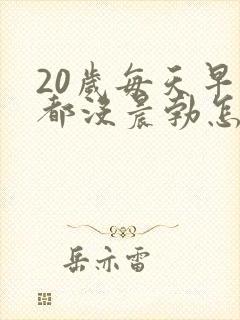 20歲每天早
都沒晨勃怎
岳亦雷